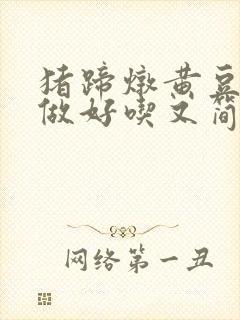 猪蹄炖黄豆
做好喫又简
网络第一丑